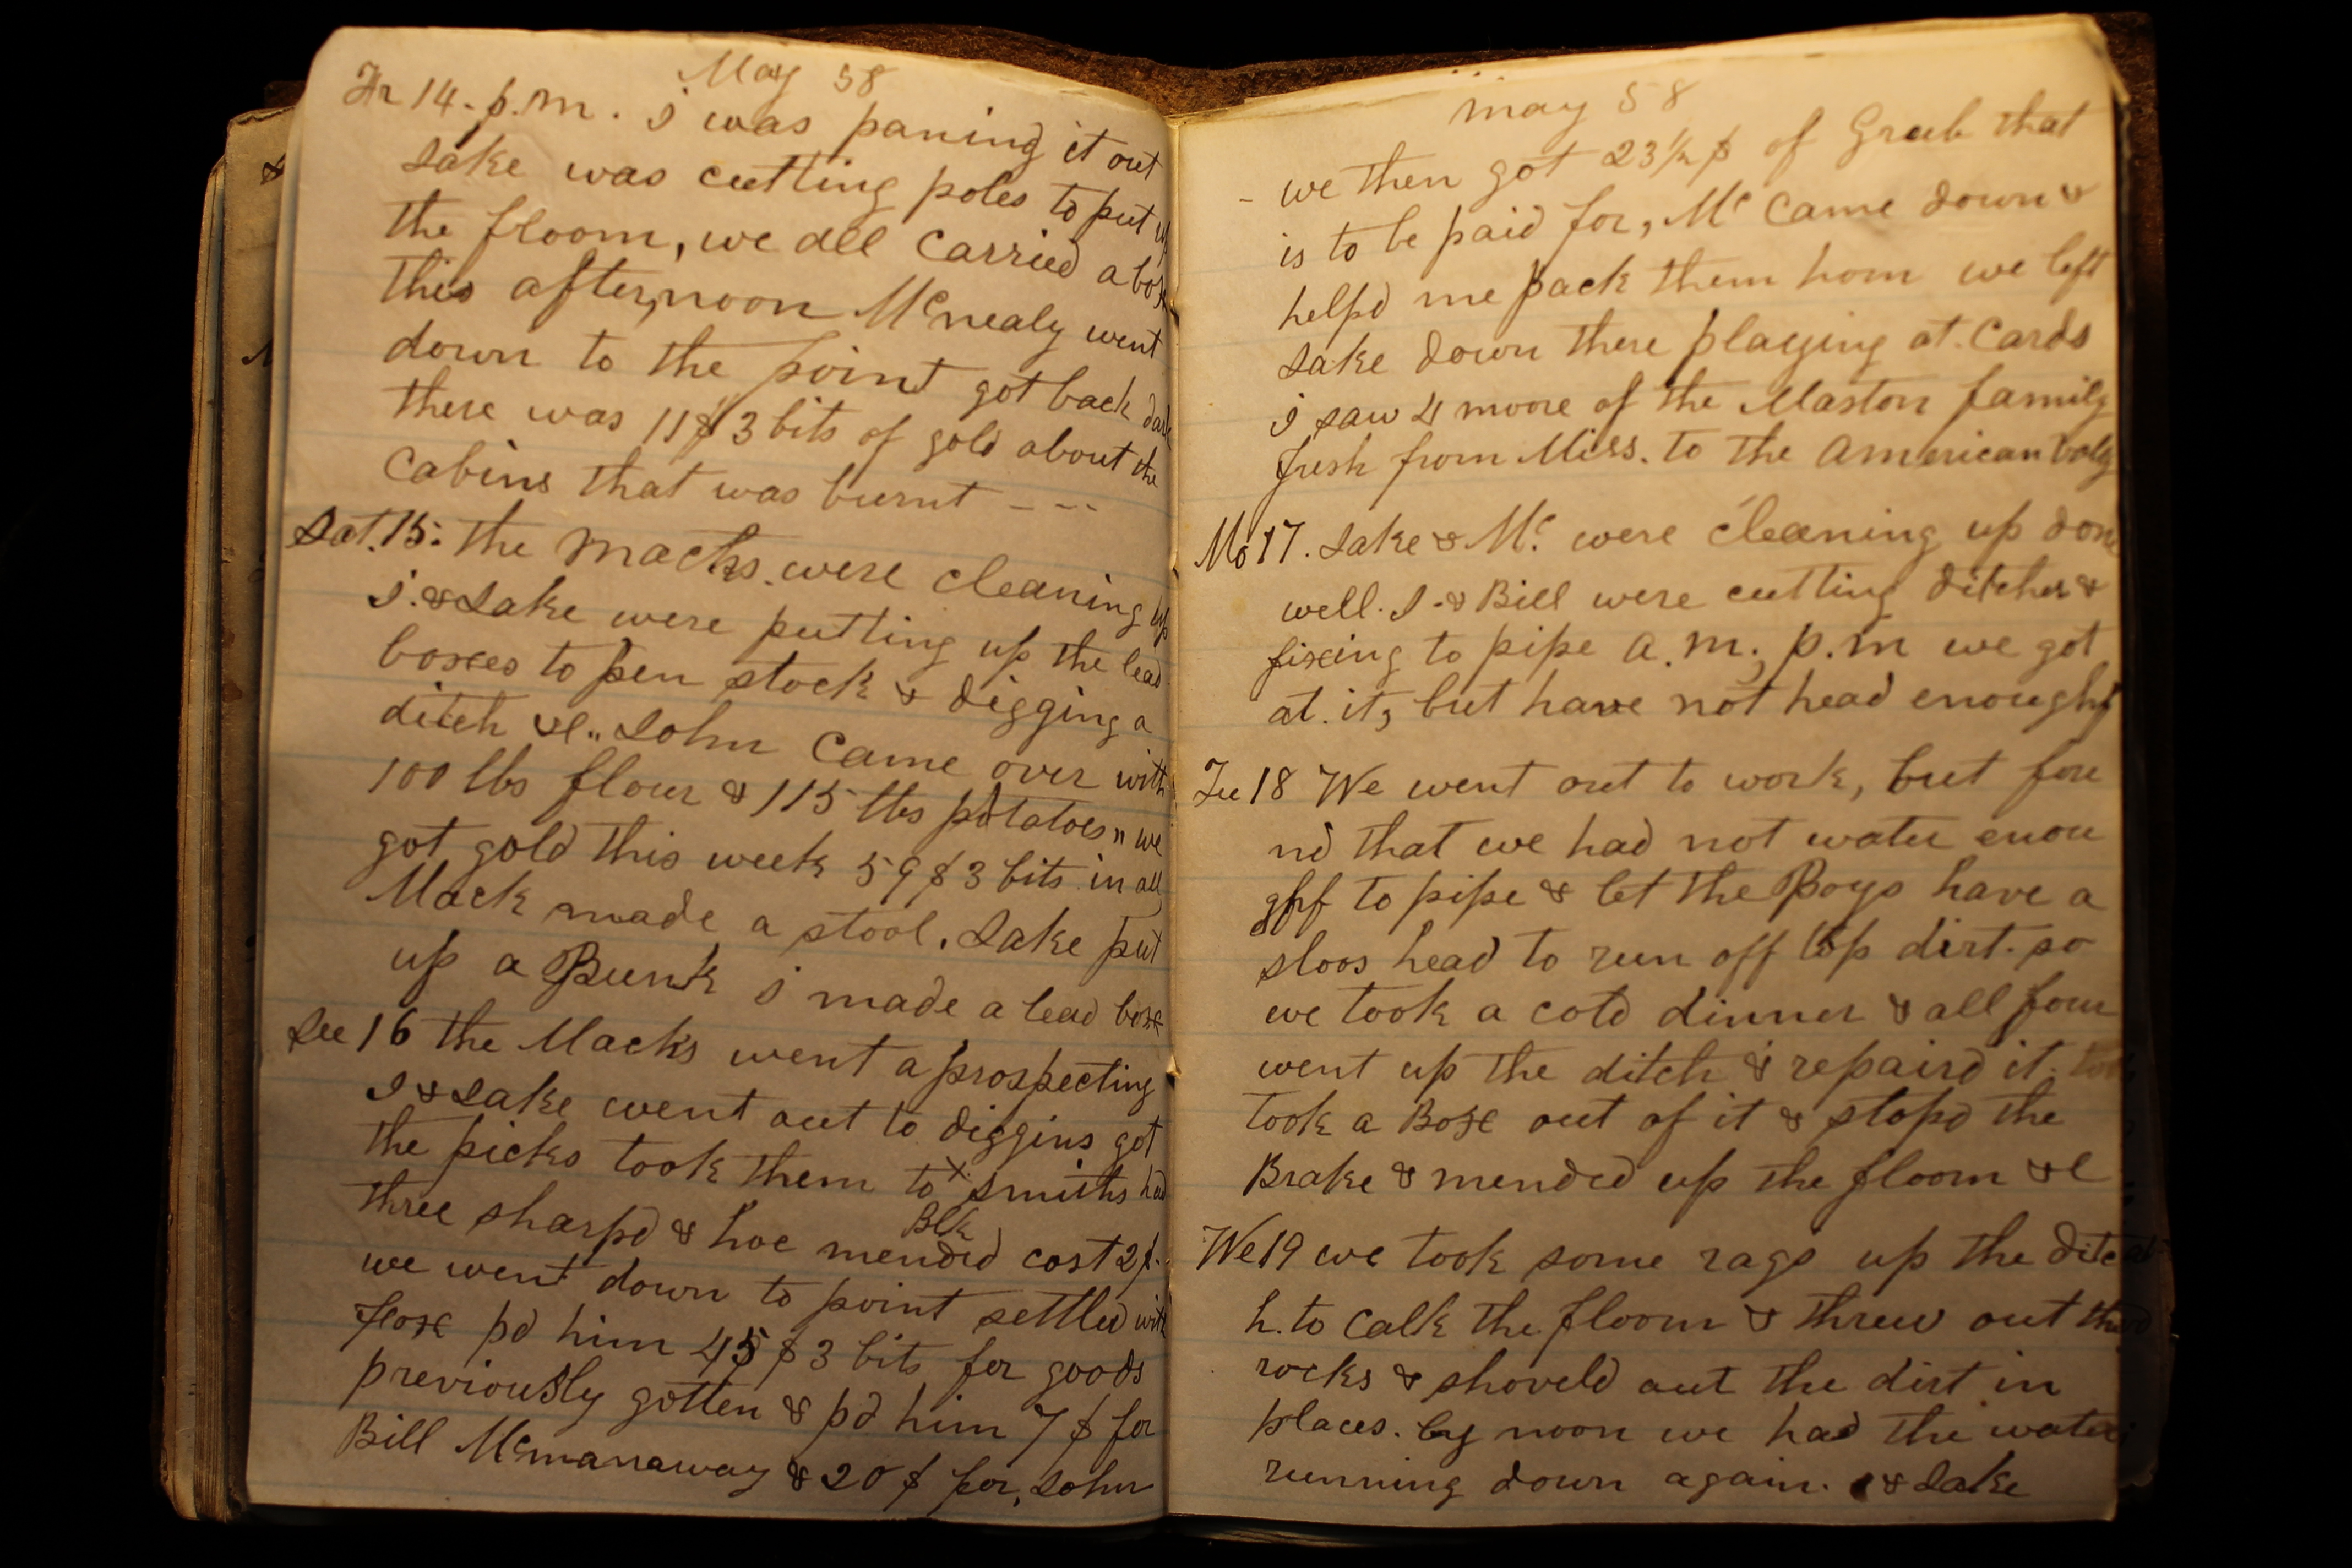 May 58
Fr 14. p.m. i was paning it out
Jake was cutting poles to put up
the floom, we all carried a box
this afternoon Mcnealy went
down to the point got back dark
there was 11$ 3 bits of gold about the
Cabins that was burnt - - -
Sat. 15: the macks were cleaning up
i. & Jake were putting up the lead
boxes to pen stock & digging a
ditch &c,, John came over with
100 lbs flour & 115 lbs potatoes,, we
got gold this week 59$ 3 bits in all
Mack made a stool. Jake put
up a Bunk i made a lead boxe
Su 16 the Macks went a prospecting
I & Jake went out to diggins got
the picks took them to x smiths had
Blk
three sharpd & hoe mended cost 2$.
we went down to point settled with
Fox pd him 45$ 3 bits for goods
previously gotten & pd him 7$ for
Bill Mcmanaway & 20$ for, John
may 58
- we then got 23½ $ of Grub that
is to be paid for, Mc Came down &
helpd me pack them hom we left
Jake down there playing at. Cards
i saw 4 moore of the Maston family
fresh from Miss. to the american vally
Mo 17. Jake & Mc. were cleaning up done
well. I. & Bill were cutting ditches &
fixing to pipe a.m; p.m we got
at. it, but have not head enough
Tu 18 We went out to work, but fou
nd that we had not water enou
gh to pipe & let the Boys have a
sloos head to run off top dirt. so
we took a cold dinner & all four
went up the ditch & repaird it.
took a Boxe out of it & stopd the
Brake & mended up the floom &c
We 19 we took some rags up the ditc
h. to Calk the floom & threw out the
rocks & shoveld out the dirt in
places. by noon we had the water
running down again. i & Jake